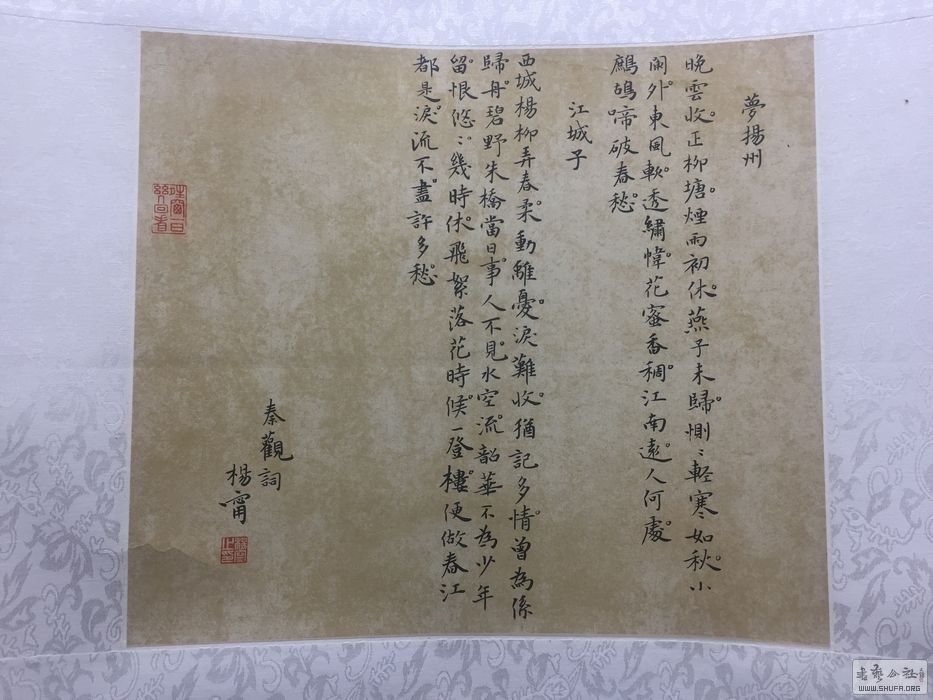 夢揚州
晚雲收。正柳塘。煙雨初休。燕子未歸。惻〻輕寒如秋。小
闌外東風軟。透繡幃。花蜜香稠。江南遠。人何處。
鷓鴣啼破春愁。
江城子
西城楊柳弄春柔。動離憂。淚難收。猶記多情。曾為係
歸舟。碧野朱橋當日事。人不見。水空流。韶華不為少年
留。恨悠〻。幾時休。飛絮落花時候。一登樓。便做春江
都是淚。流不盡。許多愁。
秦觀詞
楊甯
書藝公社
WWW.SHUFA.ORG